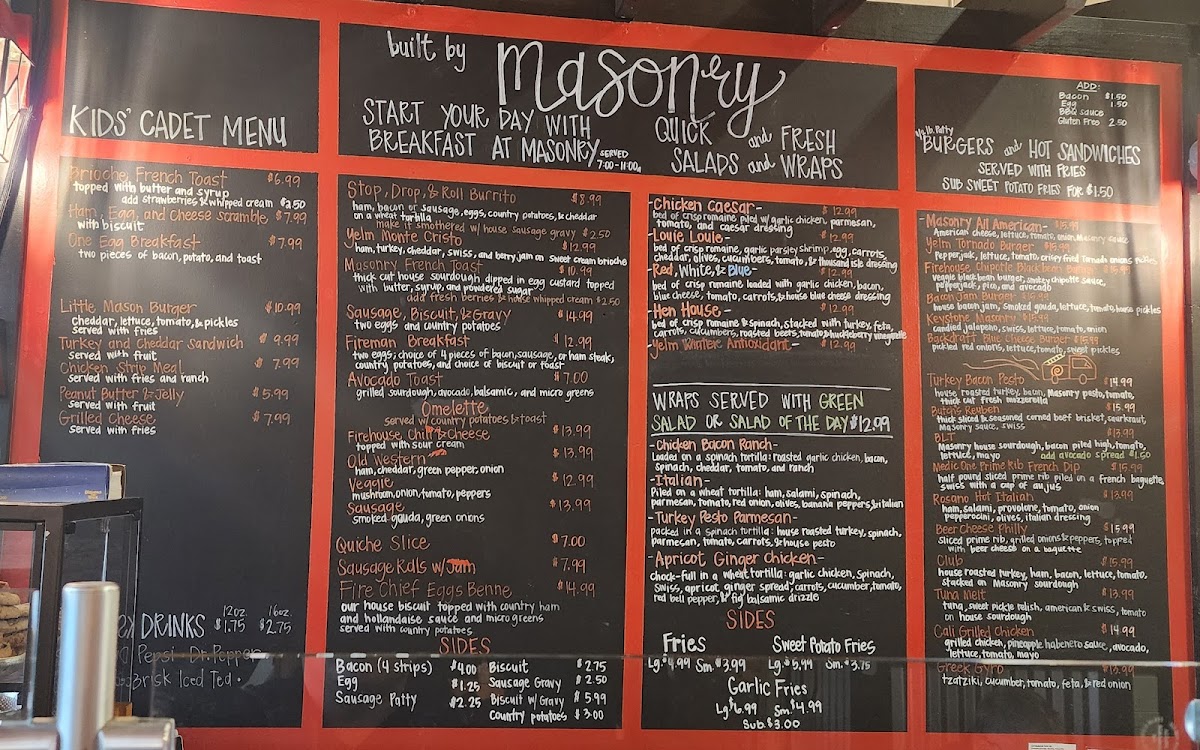 KIDS' CADET MENU
Brioche French Toast $6.99
topped with butter and syrup
add strawberries & whipped cream $2.50
Ham, Egg, and Cheese scramble, $7.99
with biscuit
One Egg Breakfast $7.99
two pieces of bacon, potato, and toast
Little Mason Burger $10.99
cheddar, lettuce, tomato, & pickles
served with fries
Turkey and Cheddar Sandwich $9.99
served with fruit
Chicken Strip Meal $7.99
served with fries and ranch
Peanut Butter & Jelly $5.99
served with fruit
Grilled Cheese $7.99
served with fries
DRINKS 12oz. $1.75 16oz. $2.75
Pepsi · Dr. Pepper
Brisk Iced Tea ·
built by Masonry
START YOUR DAY WITH
BREAKFAST AT MASONRY SERVED
7:00-11:00
Stop, Drop, & Roll Burrito $8.99
ham, bacon or sausage, eggs, country potatoes, & cheddar
on a wheat tortilla
make it smothered w/ house sausage gravy $2.50
Yelm Monte Cristo $12.99
ham, turkey, cheddar, swiss, and berry jam on sweet cream brioche
Masonry French Toast $10.99
thick cut house sourdough dipped in egg custard topped
with butter, syrup, and powdered sugar
add fresh berries & house whipped cream $2.50
Sausage, Biscuit, & Gravy $14.99
two eggs and country potatoes
Fireman Breakfast $12.99
two eggs, choice of 4 pieces of bacon, sausage, or ham steak,
country potatoes, and choice of biscuit or toast
Avocado Toast $7.00
grilled sourdough, avocado, balsamic, and micro greens
Omelette
served w/ country potatoes & toast
Firehouse Chili & Cheese $13.99
topped with sour cream
Old Western $13.99
ham, cheddar, green pepper, onion
Veggie $12.99
mushroom, onion, tomato, peppers
Sausage $13.99
smoked gouda, green onions
Quiche Slice $7.00
Sausage Rolls w/ Jam $7.99
Fire Chief Eggs Benne $14.99
our house biscuit topped with country ham
and hollandaise sauce and microgreens
served with country potatoes
SIDES
Bacon (4 strips) $4.00 Biscuit $2.75
Egg $1.25 Sausage Gravy $2.50
Sausage Patty $2.25 Biscuit w/ Gravy $5.99
Country potatoes $3.00
QUICK and FRESH
SALADS and WRAPS
-Chicken Caesar- $12.99
bed of crisp romaine piled w/ garlic chicken, parmesan,
tomato, and caesar dressing
-Louie Louie- $12.99
bed of crisp romaine, garlic parsley shrimp, egg, carrots,
cheddar, olives, cucumbers, tomato, & thousand isle dressing
-Red, White, & Blue- $12.99
bed of crisp romaine loaded with garlic chicken, bacon,
blue cheese, tomato, carrots, & house blue cheese dressing
-Hen House- $12.99
bed of crisp romaine & spinach, stacked with turkey, feta,
carrots, cucumbers, roasted beets, tomato, & huckleberry vinegrette
-Yelm Winter Antioxidant- $12.99
WRAPS SERVED WITH GREEN
SALAD OR SALAD OF THE DAY $12.99
-Chicken Bacon Ranch-
Loaded on a spinach tortilla: roasted garlic chicken, bacon,
spinach, cheddar, tomato, and ranch
-Italian-
Piled on a wheat tortilla: ham, salami, spinach,
parmesan, tomato, red onion, olives, banana peppers, & italian
-Turkey Pesto Parmesan-
packed in a spinach tortilla: house roasted turkey, spinach,
parmesan, tomato, carrots, & house pesto
-Apricot Ginger Chicken-
chock-full in a wheat tortilla: garlic chicken, spinach,
swiss, apricot ginger spread, carrots, cucumber, tomato,
red bell pepper, & fig balsamic drizzle
SIDES
Fries Sweet Potato Fries
Lg. $4.99 Sm. $3.99 Lg. $5.99 Sm. $3.75
Garlic Fries
Lg. $6.99 Sm. $4.99
Sub. $3.00
ADD:
Bacon $1.50
Egg 1.50
BBQ sauce
Gluten Free 2.50
1/2 lb. Patty
BURGERS and HOT SANDWICHES
SERVED WITH FRIES
SUB SWEET POTATO FRIES FOR $1.50
-Masonry All American- $15.99
American cheese, lettuce, tomato, onion, Masonry sauce
Yelm Tornado Burger $15.99
Pepperjack, lettuce, tomato, crispy fried Tornado onions, pickles
Firehouse Chipotle Blackbean Burger $15.99
veggie blackbean burger, smokey chipotle sauce,
pepperjack, pico, and avocado
Bacon Jam Burger $15.99
house bacon jam, smoked gouda, lettuce, tomato, house pickles
Keystone Masonry $15.99
candied jalapeno, swiss, lettuce, tomato, onion
Backdraft Blue Cheese Burger $15.99
pickled red onions, lettuce, tomato, sweet pickles
Turkey Bacon Pesto $14.99
house roasted turkey, bacon, Masonry pesto, tomato,
thick cut fresh mozzerella
Butch's Reuben $15.99
thick sliced & seasoned corned beef brisket, saurkraut,
Masonry sauce, swiss
BLT $13.99
Masonry house sourdough, bacon piled high, tomato,
lettuce, mayo add avocado spread $1.50
Medic One Prime Rib French Dip $15.99
half pound sliced prime rib piled on a french baguette,
swiss with a cup of au jus
Rosano Hot Italian $13.99
ham, salami, provolone, tomato, onion
pepperocini, olives, italian dressing
Beer Cheese Philly $15.99
sliced prime rib, grilled onions & peppers, topped
with beer cheese on a baguette
Club $15.99
house roasted turkey, ham, bacon, lettuce, tomato,
stacked on Masonry sourdough
Tuna Melt $13.99
tuna, sweet pickle relish, american & swiss, tomato
on house sourdough
Cali Grilled Chicken $14.99
grilled chicken, pineapple habenero sauce, avocado,
lettuce, tomato, mayo
Greek Gyro $13.99
tzatziki, cucumber, tomato, feta, & red onion